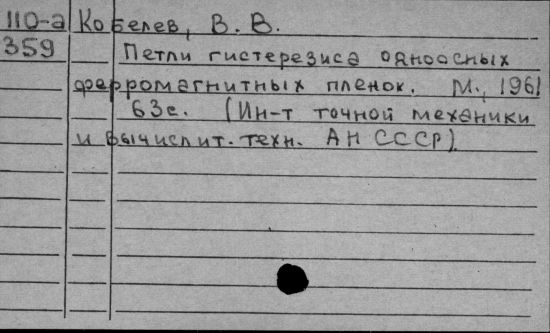 110-а Кобелев, В. В.
359 Петли гистерезиса одноосных
ферромагнитных пленок. М., 1961
63с. (Ин-т точной механики
и вычислит. техн. АН СССР)